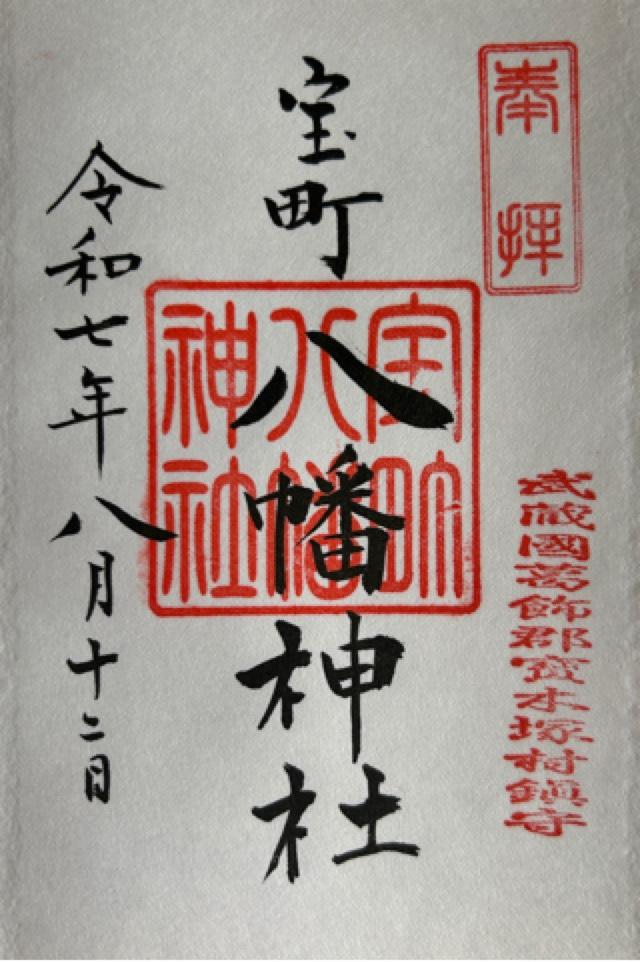 奉拝
武蔵國葛飾郡寳木塚村鎮守
宝町八幡神社
宝町
八幡
神社
令和七年八月十二日